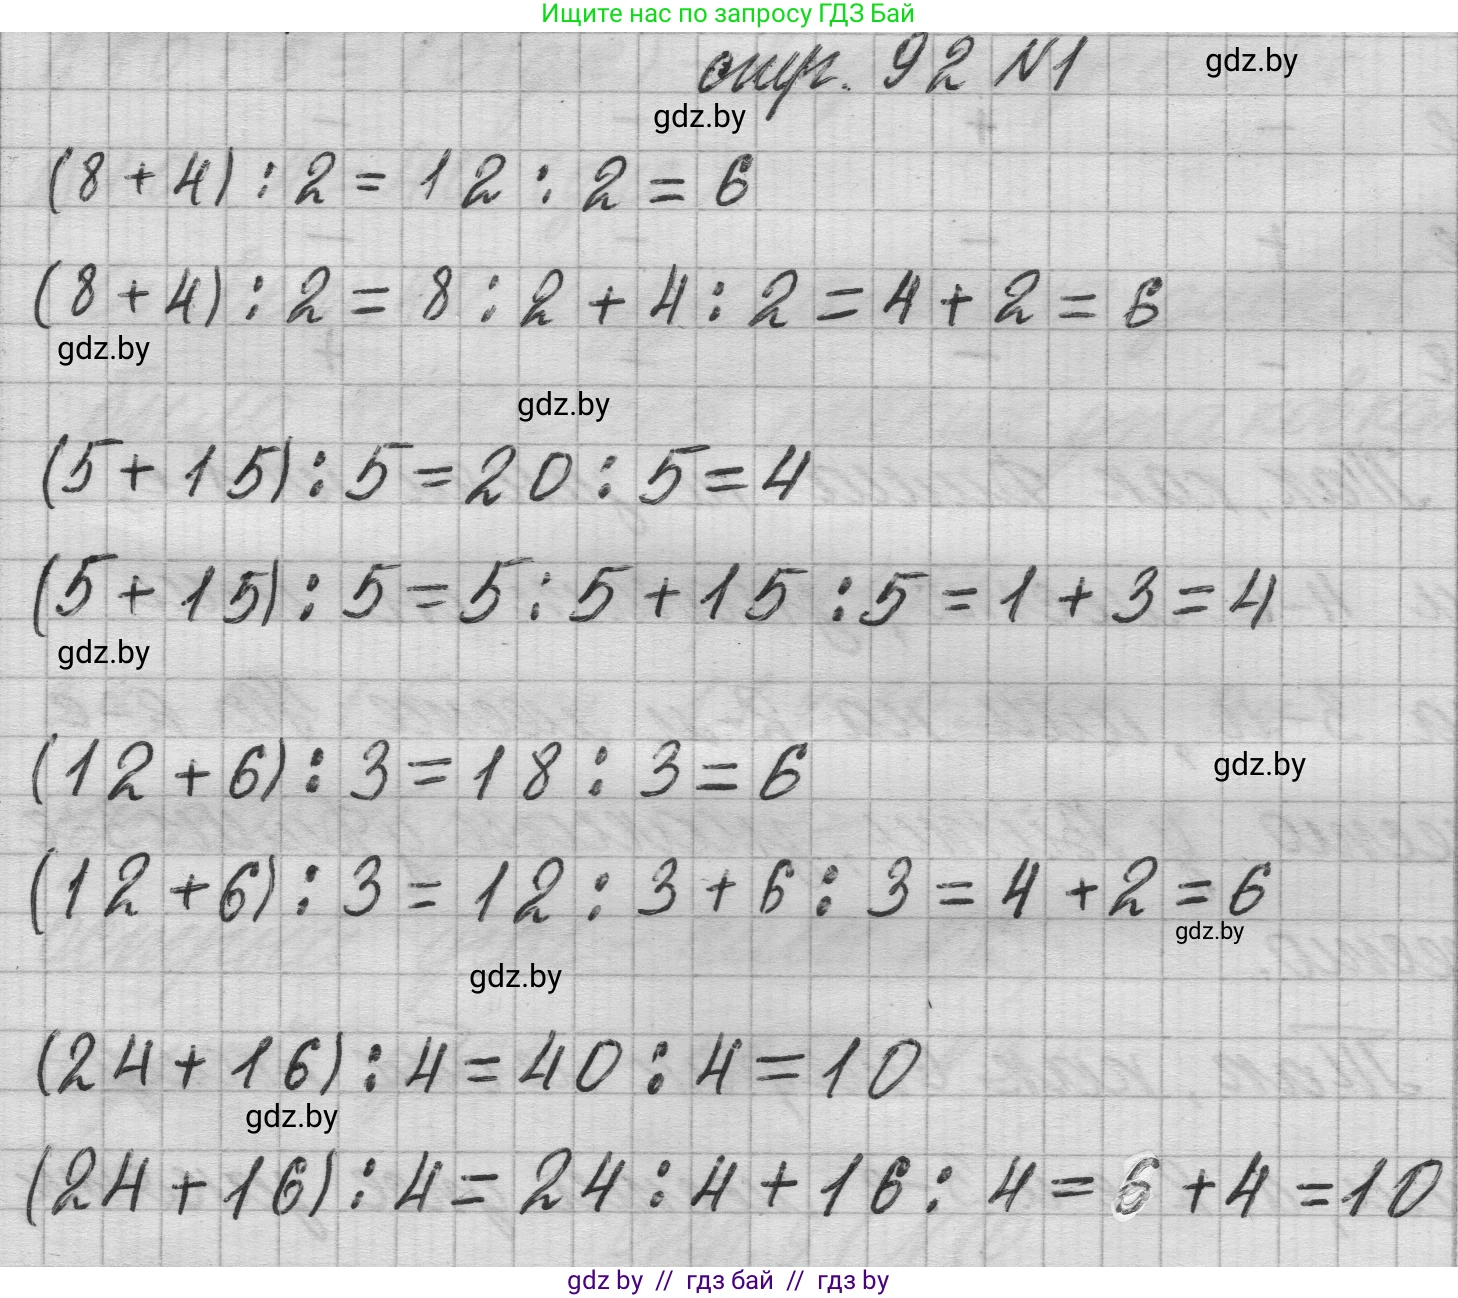 Ищите нас по запросу ГДЗ Бай
стр. 92 №1
gdz.by
gdz.by
(8 + 4) : 2 = 12 : 2 = 6
(8 + 4) : 2 = 8 : 2 + 4 : 2 = 4 + 2 = 6
gdz.by
gdz.by
(5 + 15) : 5 = 20 : 5 = 4
(5 + 15) : 5 = 5 : 5 + 15 : 5 = 1 + 3 = 4
gdz.by
(12 + 6) : 3 = 18 : 3 = 6
gdz.by
(12 + 6) : 3 = 12 : 3 + 6 : 3 = 4 + 2 = 6
gdz.by
gdz.by
(24 + 16) : 4 = 40 : 4 = 10
gdz.by
(24 + 16) : 4 = 24 : 4 + 16 : 4 = 6 + 4 = 10
gdz by // гдз бай // гдз by